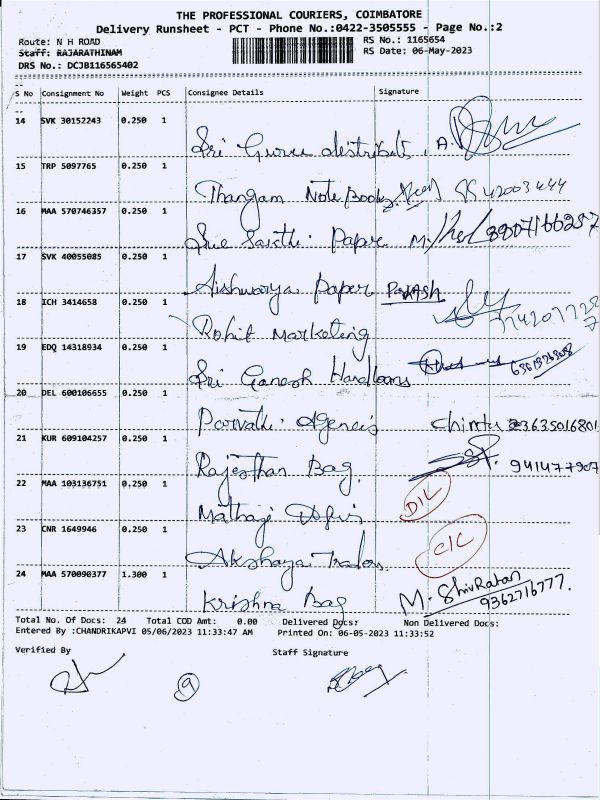 THE PROFESSIONAL COURIERS, COIMBATORE
Delivery Runsheet - PCT - Phone No.:0422-3505555 - Page No.:2
Route: N H ROAD
RS No.: 1165654
Staff: RAJARATHINAM
RS Date: 06-May-2023
DRS No.: DCJB116565402
S No Consignment No Weight PCS Consignee Details Signature
14 SVK 30152243 0.250 1
Sri Guru distributs. A.
15 TRP 5097765 0.250 1
Thangam Note Books
16 MAA 570746357 0.250 1
Sree Sarthi Paper M.
17 SVK 40055085 0.250 1
Aishwarya paper PRKASH
18 ICH 3414658 0.250 1
Rohit Marketing
19 EDQ 14318934 0.250 1
Sri Ganesh Handlooms
20 DEL 600106655 0.250 1
Parvathi Agencis chintu
21 KUR 609104257 0.250 1
Rajesthan Bag.
22 MAA 103136751 0.250 1
Mathaji D/L
23 CNR 1649946 0.250 1
Akshaya Trades. C/L
24 MAA 570090377 1.300 1
Krishna Bag M. ShivRatan
9362716777.
Total No. Of Docs: 24 Total COD Amt: 0.00 Delivered Docs: Non Delivered Docs:
Entered By :CHANDRIKAPVI 05/06/2023 11:33:47 AM Printed On: 06-05-2023 11:33:52
Verified By Staff Signature
9